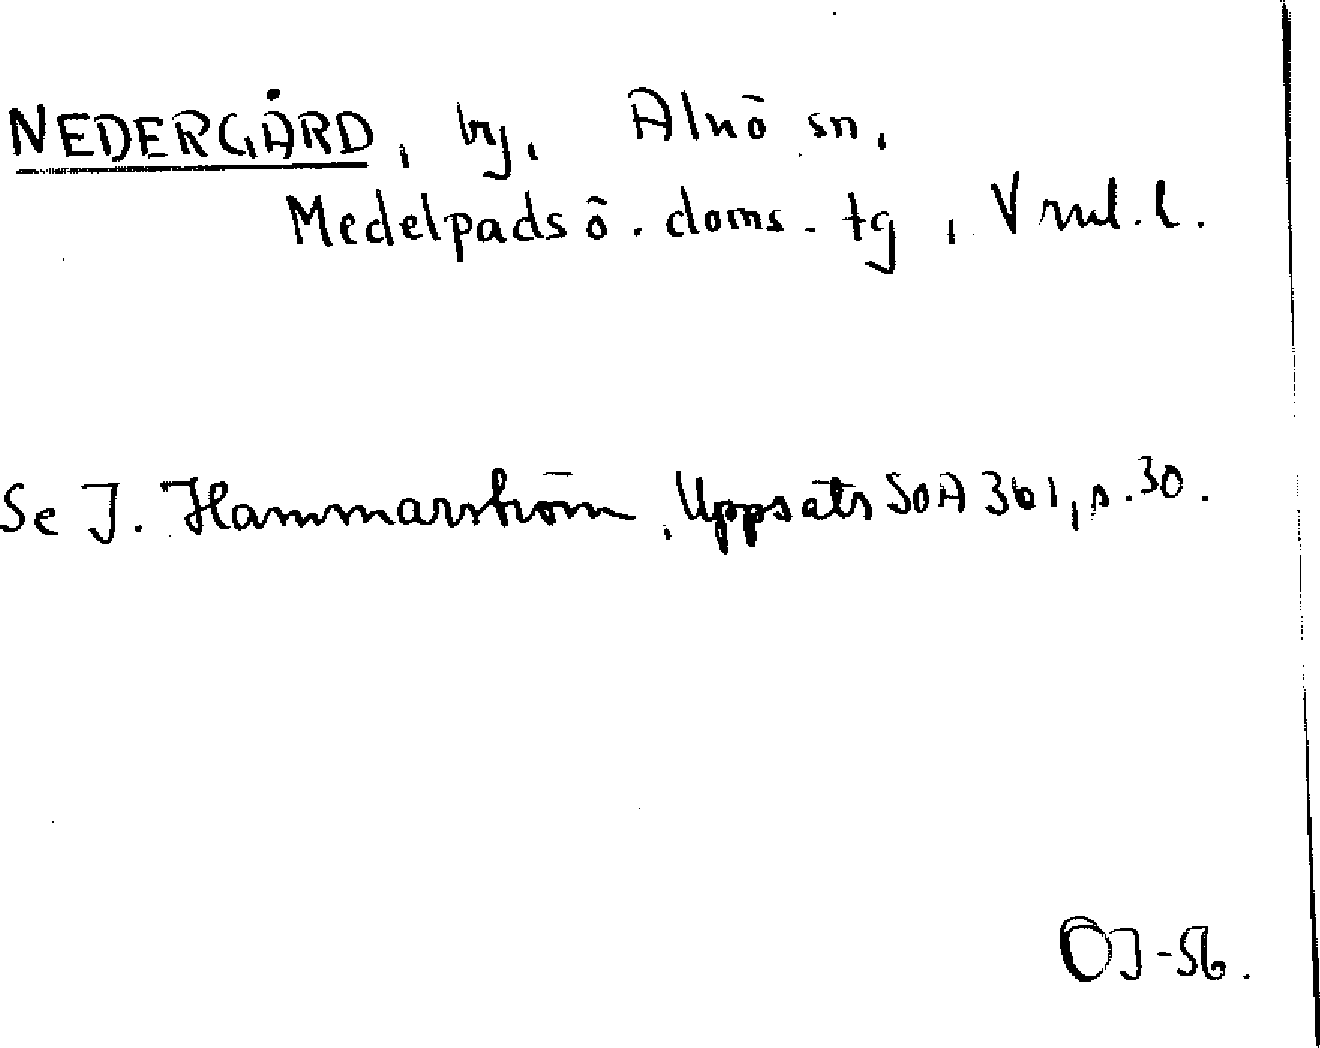 NEDERGÅRD, by, Alnö sn,
Medelpads ö. doms. tg, Vnml. l.
Se J. Hammarström, Uppsats SOA 361, s. 30.
OJ-56.